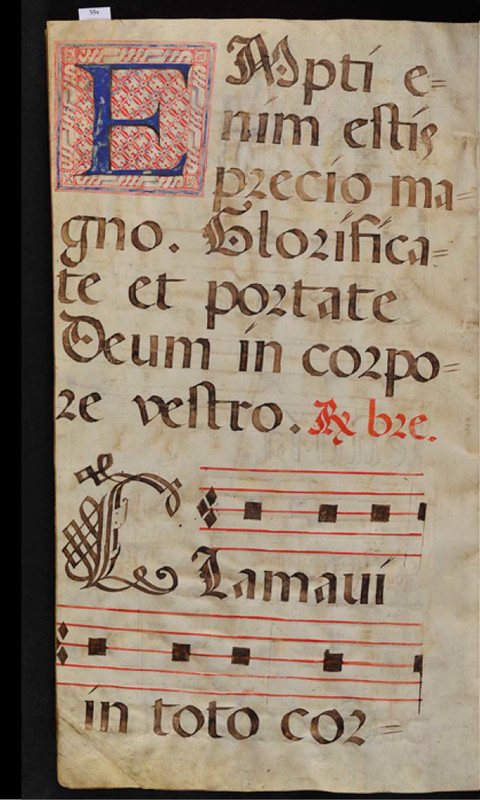 55v
EMpti e=
nim estis
precio ma=
gno. Glorifica=
te et portate
Deum in corpo=
re vestro. ℟ bre.
Clamaui
in toto cor=